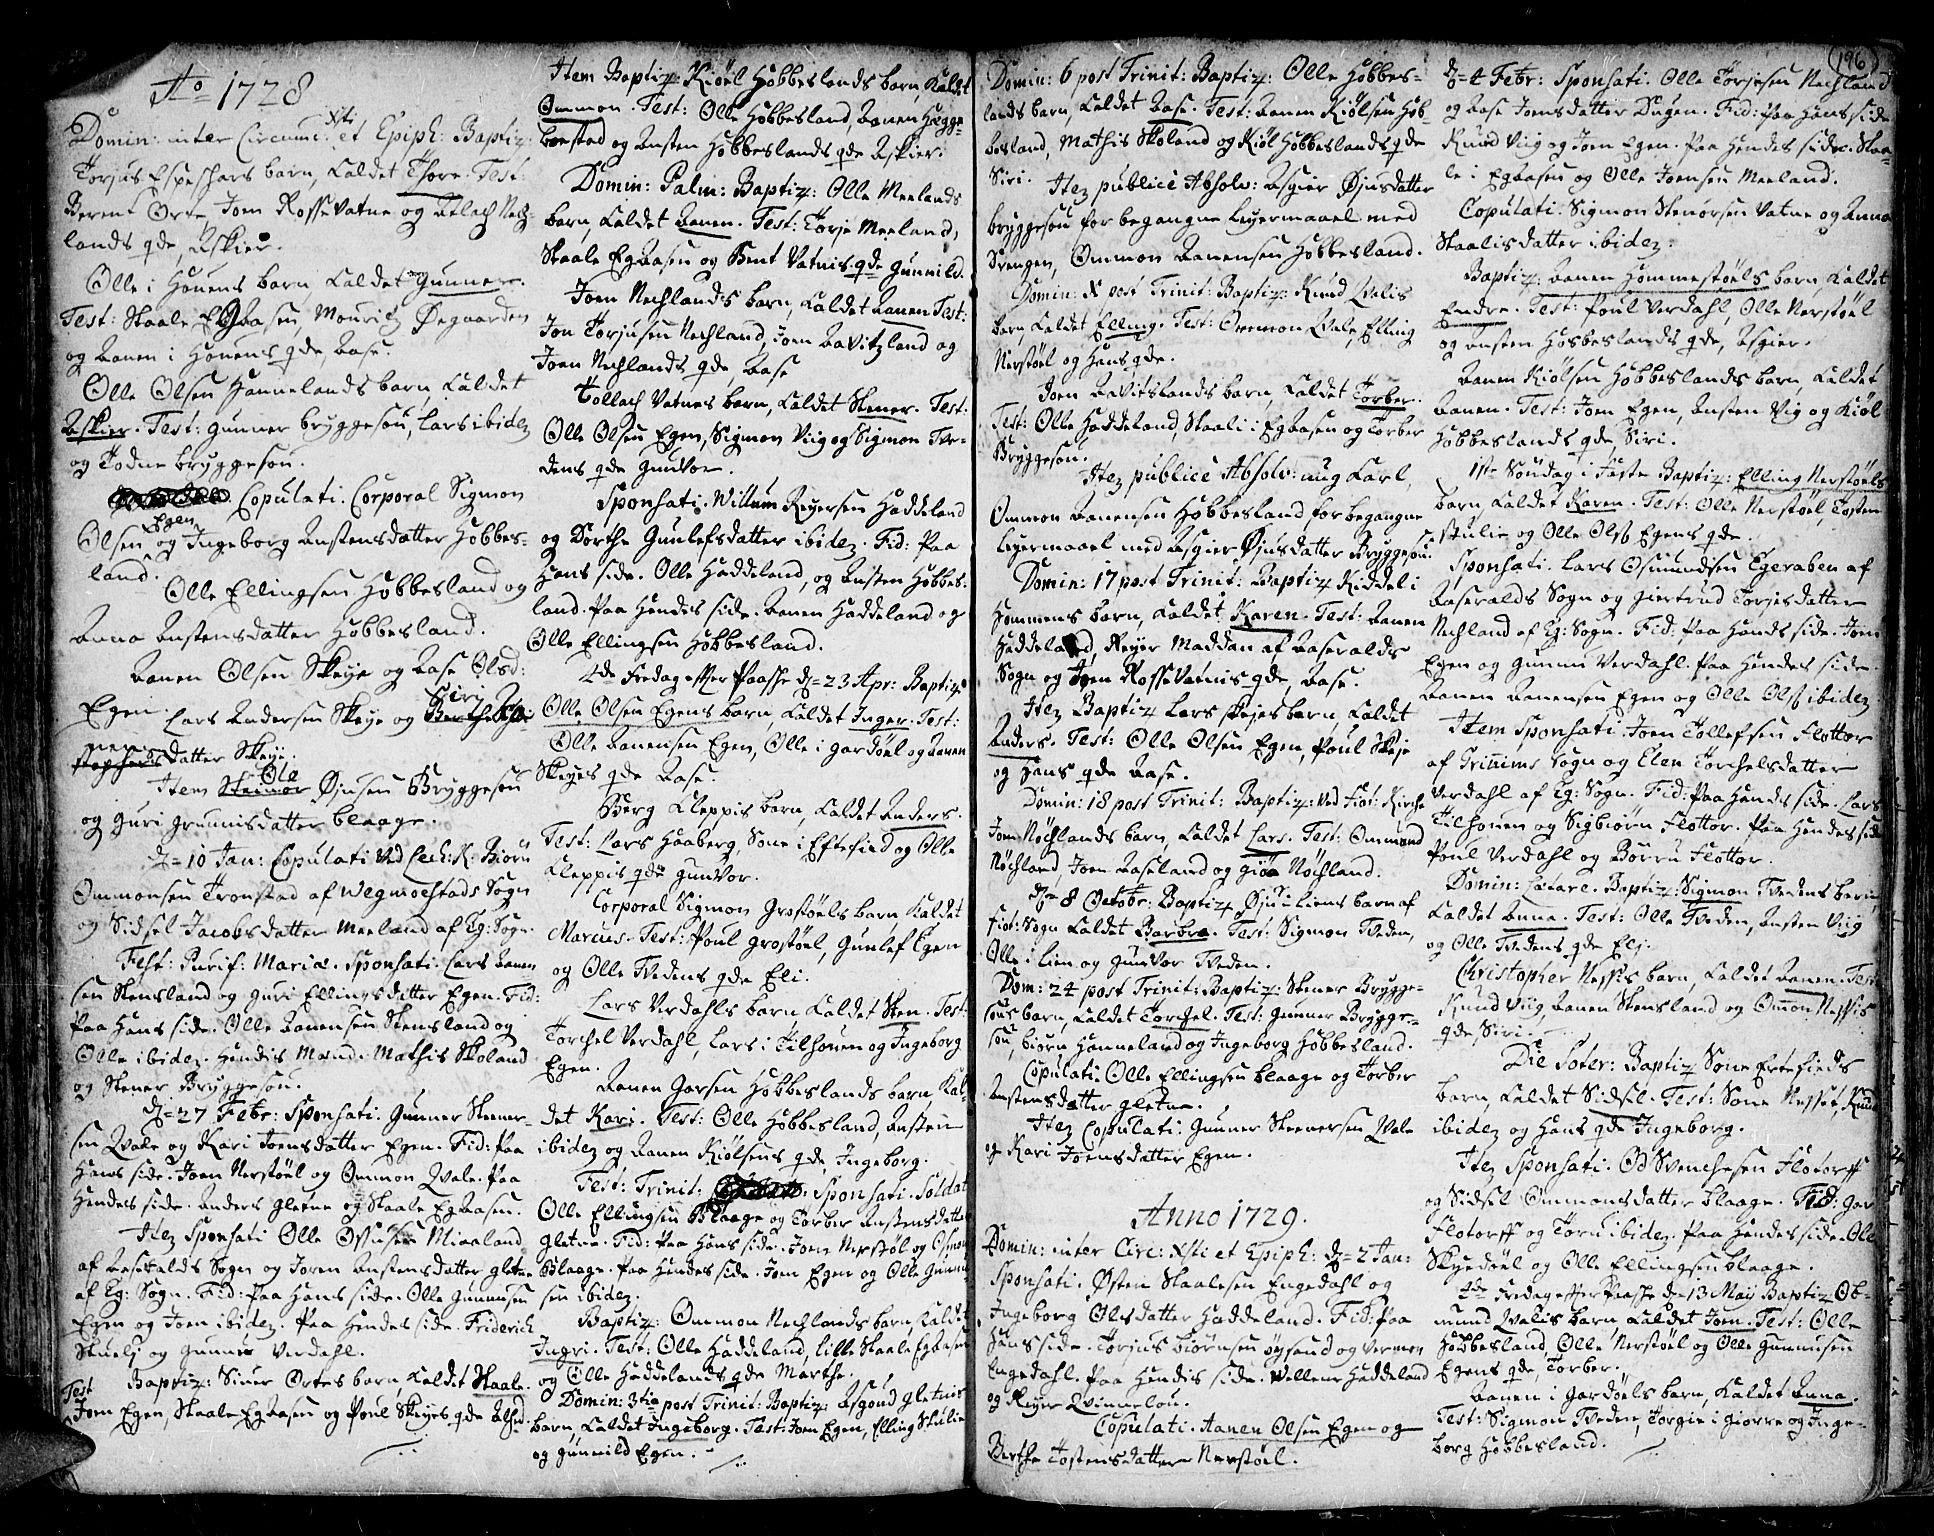 Ao 1728
Domin: inter Circumc: Xti et Epiph: Baptiz:
Torjus Espeschars barn, Kaldet Thore. Test:
Berent Orte, Joen Rossevatne og Atlach Nech-
lands qde, Askier.
Olle i Houens barn, Kaldet Gunner.
Test: Staale Egaasen, Mouritz Øegaarden
og Aanen i Houens qde, Aase.
Olle Olsen Hannelands barn, Kaldet
Askier. Test: Gunner Bryggesou, Lars ibidem
og Todne Bryggesou.
Copulati. Corporal Sigmon
Olsen Egen og Ingeborg Anstensdatter Hobbes-
land.
Olle Ellingsen Hobbesland og
Anna Anstensdatter Hobbesland.
Aanen Olsen Skeye og Aase Olsd:
Egen. Lars Andersen Skeye og Siri
datter Skeye.
Item Ole Øjusen Bryggesou
og Guri Grunnisdatter Blaage.
D= 10 Jan: Copulati ved Lech: K: Biørn
Ommonsen Tronstad af Wegmoestads Sogn
og Sidsel Jacobsdatter Meeland af Eg: Sogn.
Fest: Purif: Mariæ. Sponsati. Lars Aanen
sen Stensland og Guri Ellingsdatter Egen. Fid:
Paa Hans side. Olle Aanensen Stensland og
Olle ibidem. Hendis Mand. Mathis Skoland
og Stener Bryggesou.
D= 27 Febr: Sponsati. Gunner Steener-
sen Qvale og Kari Joensdatter Egen. Fid: Paa
Hans side. Joen Nerstøel og Ommon Qvale. Paa
Hendes side. Anders Gletne og Staale Egaasen.
Item Sponsati Olle Miaaland
af Aaseralds Sogn og Joren Anstensdatter Gletne
af Eg: Sogn. Fid: Paa Hans side. Olle Gunnusen
Egen og Joen ibidem. Paa Hendes side. Friderich
Stuely og Gunner Verdahl.
Baptiz: Siver Ortes barn, Kaldet Staale.
Test
Joen Egen, Staale Egaasen og Poul Skeyes qde

Item Baptiz: Kiøel Hobbeslands barn, Kaldet
Ommon. Test: Olle Hobbesland, Aanen Hægge-
boestad og Ansten Hobbeslands qde Askier.
Domin: Palm: Baptiz: Olle Meelands
barn, Kaldet Aanen. Test: Torje Meeland,
Staale Egaasen og Bent Vatnis qde Gunnild.
Joen Nechlands barn, Kaldet Aanen Test:
Jon Torjusen Nechland, Joen Aavitzland og
Joen Nechlands qde Aase
Tollach Vatnes barn, Kaldet Stener. Test:
Olle Olsen Egen, Sigmon Viig og Sigmon Tve-
dens qde Gunvor.
Sponsati. Willum Reyersen Haddeland
og Dorthe Gunlefsdatter ibidem. Fid: Paa
Hans side. Olle Haddeland, og Ansten Hobbes-
land. Paa Hendes side. Aanen Haddeland og
Olle Ellingsen Hobbesland.
4de Fredag efter Paasche D= 23 Apr: Baptiz:
Olle Olsen Egens barn, Kaldet Inger. Test:
Olle Aanensen Egen, Olle i Gardøel og Aanen
Skeyes qde Aase.
Berg Kleppis barn, Kaldet Anders.
Test: Lars Haaberg, Sone i Eftefied og Olle
Kleppis qde Gunvor.
Corporal Sigmon Grostøels barn, Kaldet
Marcus. Test: Poul Grostøel, Gunlef Egen
og Olle Tvedens qde Eli.
Lars Verdahls barn Kaldet Sten. Test:
Torchel Verdahl, Lars i Tilhouen og Ingeborg
Egen.
Aanen Garsen Hobbeslands barn, Kal-
det Kari. Test: Olle Hobbesland, Ansten
ibidem og Aanen Kiølsens qde, Ingeborg.
Fest: Trinit: Sponsati. Soldat
Olle Ellingsen Blaage og Torber Anstensdatter
Gletne. Fid: Paa Hans side. Joen Nerstøl og Osmon
Blaage. Paa Hendes side. Joen Egen og Olle Gunnu-
sen ibidem.
Baptiz: Ommon Nechlands barn, Kaldet
Ingri. Test: Olle Haddeland, lille Staale Egaasen
og Tille Haddelands qde Marthe.
Domin: 3tia post Trinit: Baptiz: Asgoud Gletnis
barn, Kaldet Ingeborg. Test: Joen Egen, Elling Stulie
og Gunnild Egen.

196
Domin: 6 post Trinit: Baptiz: Olle Hobbes-
lands barn, Kaldet Aase. Test: Aanen Kiølsen Hob-
besland, Mathis Skoland og Kiøl Hobbeslands qde
Siri.
Item publicè Absolv: Asgier Øjusdatter
Bryggesou for begangne Leyermaael med
Ommon Aanensen Hobbesland.
Domin: X post Trinit: Baptiz: Knud Qvalis
barn, Kaldet Elling. Test: Ommon Qvale, Elling
Nerstøel og Hans qde.
Joen Aavitslands barn, Kaldet Torber.
Test: Olle Haddeland, Staali i Egaasen og Torber
Bryggesou.
Item publicè Absolv: ung Karl,
Ommon Aanensen Hobbesland, for begangne
Leyermaael med Asgier Øjusdatter Bryggesou.
Domin: 17 post Trinit: Baptiz Kiddel i
Hommens barn, Kaldet Karen. Test: Aanen
Haddeland, Reyer Maddan af Aaseralds
Sogn og Joen Rossevatnis qde, Aase.
Item Baptiz Lars Skejes barn, Kaldet
Anders. Test: Olle Olsen Egen, Poul Skeje
og Hans qde Aase.
Domin: 18 post Trinit: Baptiz: ved Fiot: Kirche
Joen Nøchlands barn, Kaldet Lars. Test: Ommund
Nøchland, Joen Aaseland og Nøchland.
D= 8 Octobr: Baptiz Øju i Liens barn af
Fiot: Sogn Kaldet Barbra. Test: Sigmon Tveden,
Olle i Lien og Gunvor Tveden.
Dom: 24 post Trinit: Baptiz: Stener Brygge-
sous barn, Kaldet Torchel. Test: Gunner Brygge-
sou, Biørn Hanneland og Ingeborg Hobbesland.
Copulati. Olle Ellingsen Blaage og Torber
Anstensdatter Gletne.
Item Copulati. Gunner Steenersen Qvale
og Kari Joensdatter Egen.
Anno 1729.
Domin: inter Circ: Xsti et Epiph: D= 2 Jan:
Sponsati. Østen Staalesen Engedahl og
Ingeborg Olsdatter Haddeland. Fid: Paa
Hans side. Torjus Biørnsen Øysand og Vermon
Engedahl. Paa Hendis side. Vellum Haddeland
og Reyer Qvinnelou.
Copulati. Aanen Olsen Egen og
Berthe Tostensdatter Nerstøel.

D= 4 Febr: Sponsati. Olle Torjesen Nechland
og Aase Joensdatter Dugen. Fid: Paa Hans side
Knud Viig og Joen Egen. Paa Hendes side. Staa-
le i Egaasen og Olle Joensen Meeland.
Copulati. Sigmon Stenersen Vatne og Anna
Staalisdatter ibidem.
Baptiz: Aanen Hommestøels barn, Kaldet
Endre. Test: Poul Verdahl, Olle Nerstøel
og Ansten Hobbeslands qde, Asgier.
Aanen Kiølsen Hobbeslands barn, Kaldet
Aanen. Test: Joen Egen, Ansten Vig og Kiøl
Hobbeslands qde, Siri.
1ste Søndag i Faste Baptiz: Elling Nerstøels
barn, Kaldet Karen. Test: Olle Nerstøel, Tosten
Stulie og Olle Ols: Egens qde.
Sponsati. Lars Osmundsen Egeraben af
Aaseralds Sogn og Giertrud Torjesdatter
Nechland af Eg: Sogn. Fid: Paa Hands side. Joen
Egen og Gunni Verdahl. Paa Hendes side.
Aanen Aanensen Egen og Olle Ols: ibidem
Item Sponsati. Joen Tollefsen Flottor
af Sogn og Elen Torchelsdatter
Verdahl af Eg: Sogn. Fid: Paa Hands side. Lars
Tilhouen og Sigbiørn Flottor. Paa Hendes side
Poul Verdahl og Børru Flottor.
Domin: Lætare. Baptiz: Sigmon Tvedens barn,
Kaldet Anna. Test: Olle Tveden, Ansten Viig
og Olle Tvedens qde Elj.
Christopher Nessis barn, Kaldet Aanen. Test:
Knud Viig Aanen Stensland og Omon Nessis
qde, Siri.
Die Soter: Baptiz Sone Ertefieds
barn, Kaldet Sidsel. Test: Sone Nesset, Knud
ibidem og Hans qde Ingeborg.
Item Sponsati. Od Svenchesen Flotorff
og Sidsel Ommonsdatter Blaage. Fid:
Flotorff og Toru ibidem. Paa Hendes side. Olle
Skyedøel og Olle Ellingsen Blaage.
4de Fredag efter Paasche D= 13 Maij Baptiz Ob-
mund Qvalis barn Kaldet Joen. Test: Olle
Hobbesland, Olle Nerstøel og Olle Gunnusen
Egens qde, Torber.
Aanen i Gardøels barn, Kaldet Anna.
Test: Sigmon Tveden, Torgie i Giorre og Inge-
borg Hobbesland.